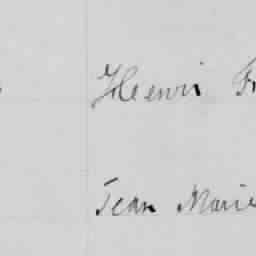 Henri Fr
Jean Marie